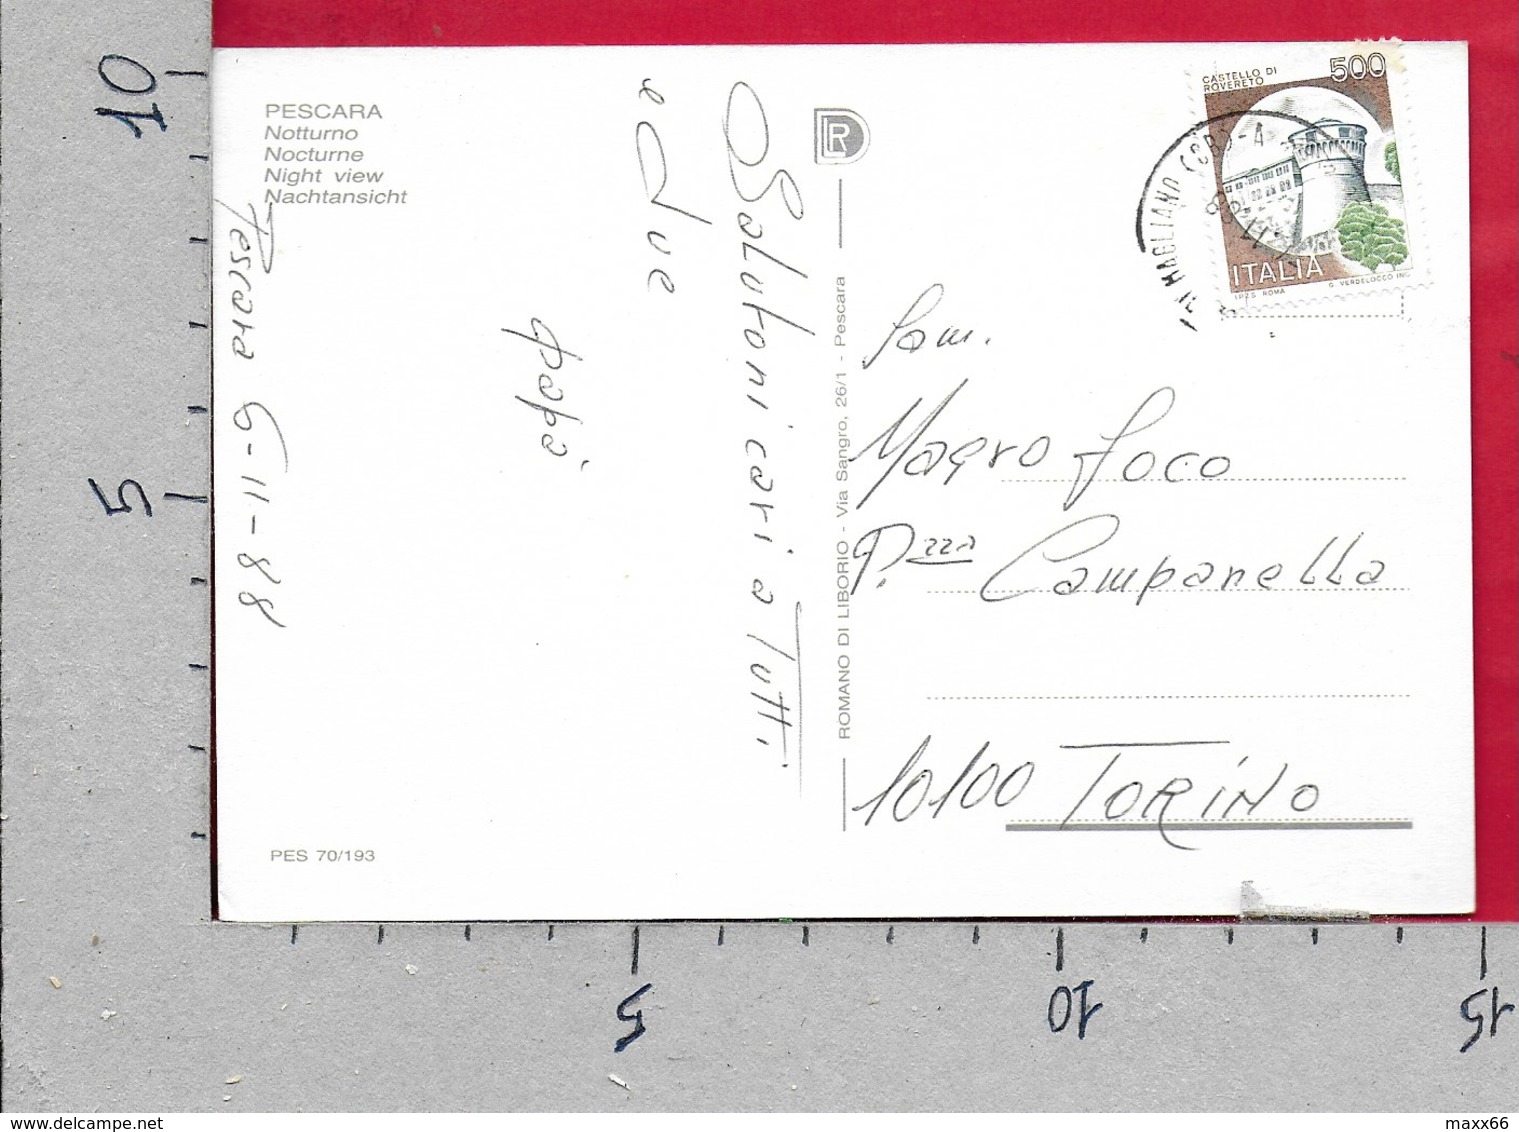 PESCARA
Notturno
Nocturne
Night view
Nachtansicht
Pescara 6-11-88
Saluti cari a Tutti
e Due
papà
PES 70/193
ROMANO DI LIBORIO - Via Sangro, 26/1 - Pescara
DLR
CASTELLO DI
ROVERETO
500
ITALIA
I.P.Z.S. ROMA
G. VERDELOCCO INC.
MAGLIANO
Fam.
Magro Foco
P.zza Campanella
10100 TORINO
10
5
5
10
15
delcampe.net
maxx66